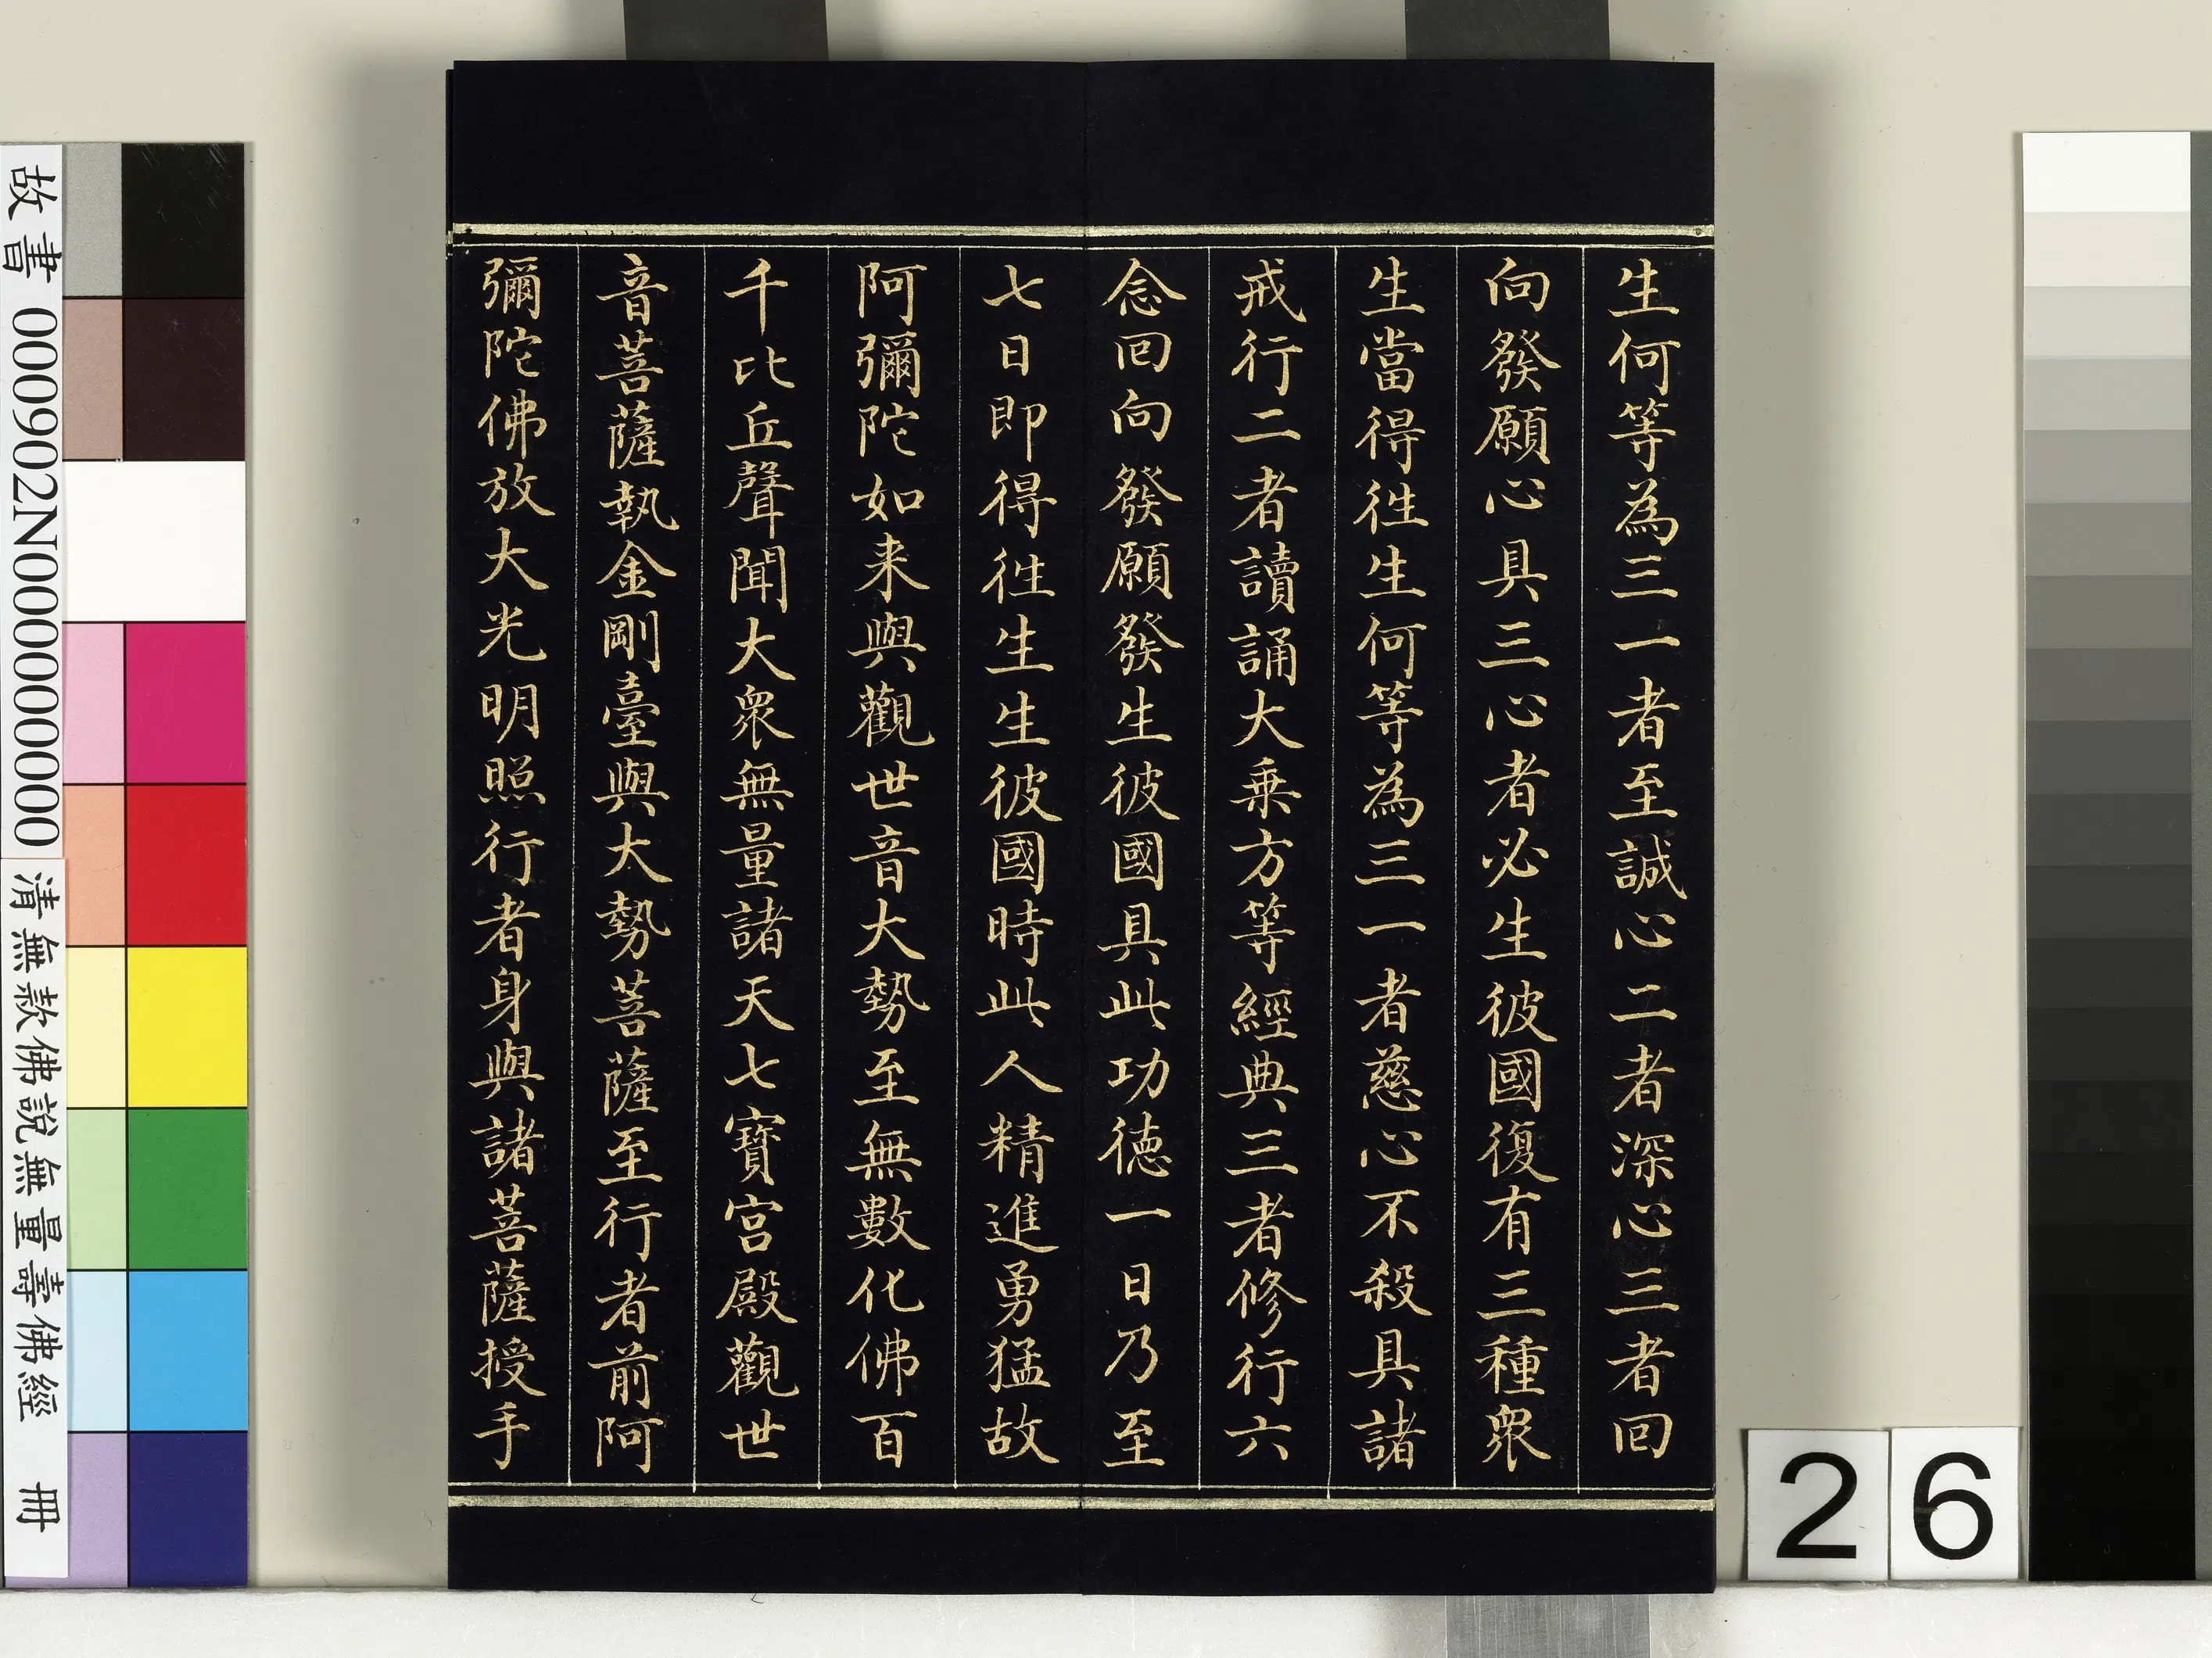 生何等為三一者至誠心二者深心三者回
向發願心具三心者必生彼國復有三種眾
生當得往生何等為三一者慈心不殺具諸
戒行二者讀誦大乘方等經典三者修行六
念回向發願發生彼國具此功德一日乃至
七日即得往生生彼國時此人精進勇猛故
阿彌陀如來與觀世音大勢至無數化佛百
千比丘聲聞大眾無量諸天七寶宮殿觀世
音菩薩執金剛臺與大勢菩薩至行者前阿
彌陀佛放大光明照行者身與諸菩薩授手
故書 000902N000000000
清無款佛說無量壽佛經 冊
26